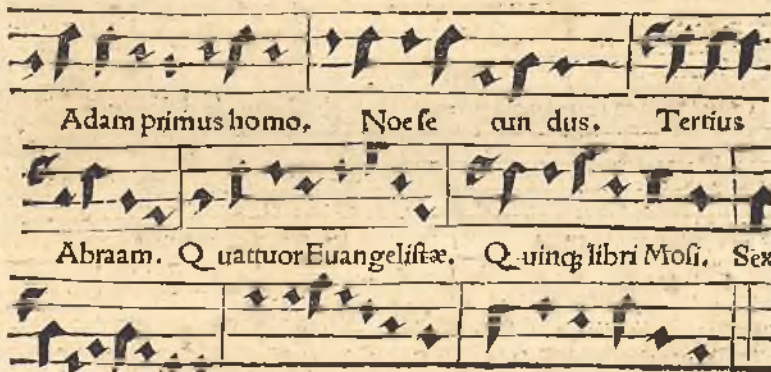 Adam primus homo. Noe ſe cun dus. Tertius
Abraam. Q uattuor Euangeliſtæ. Q uinqꝫ libri Moſi. Sex